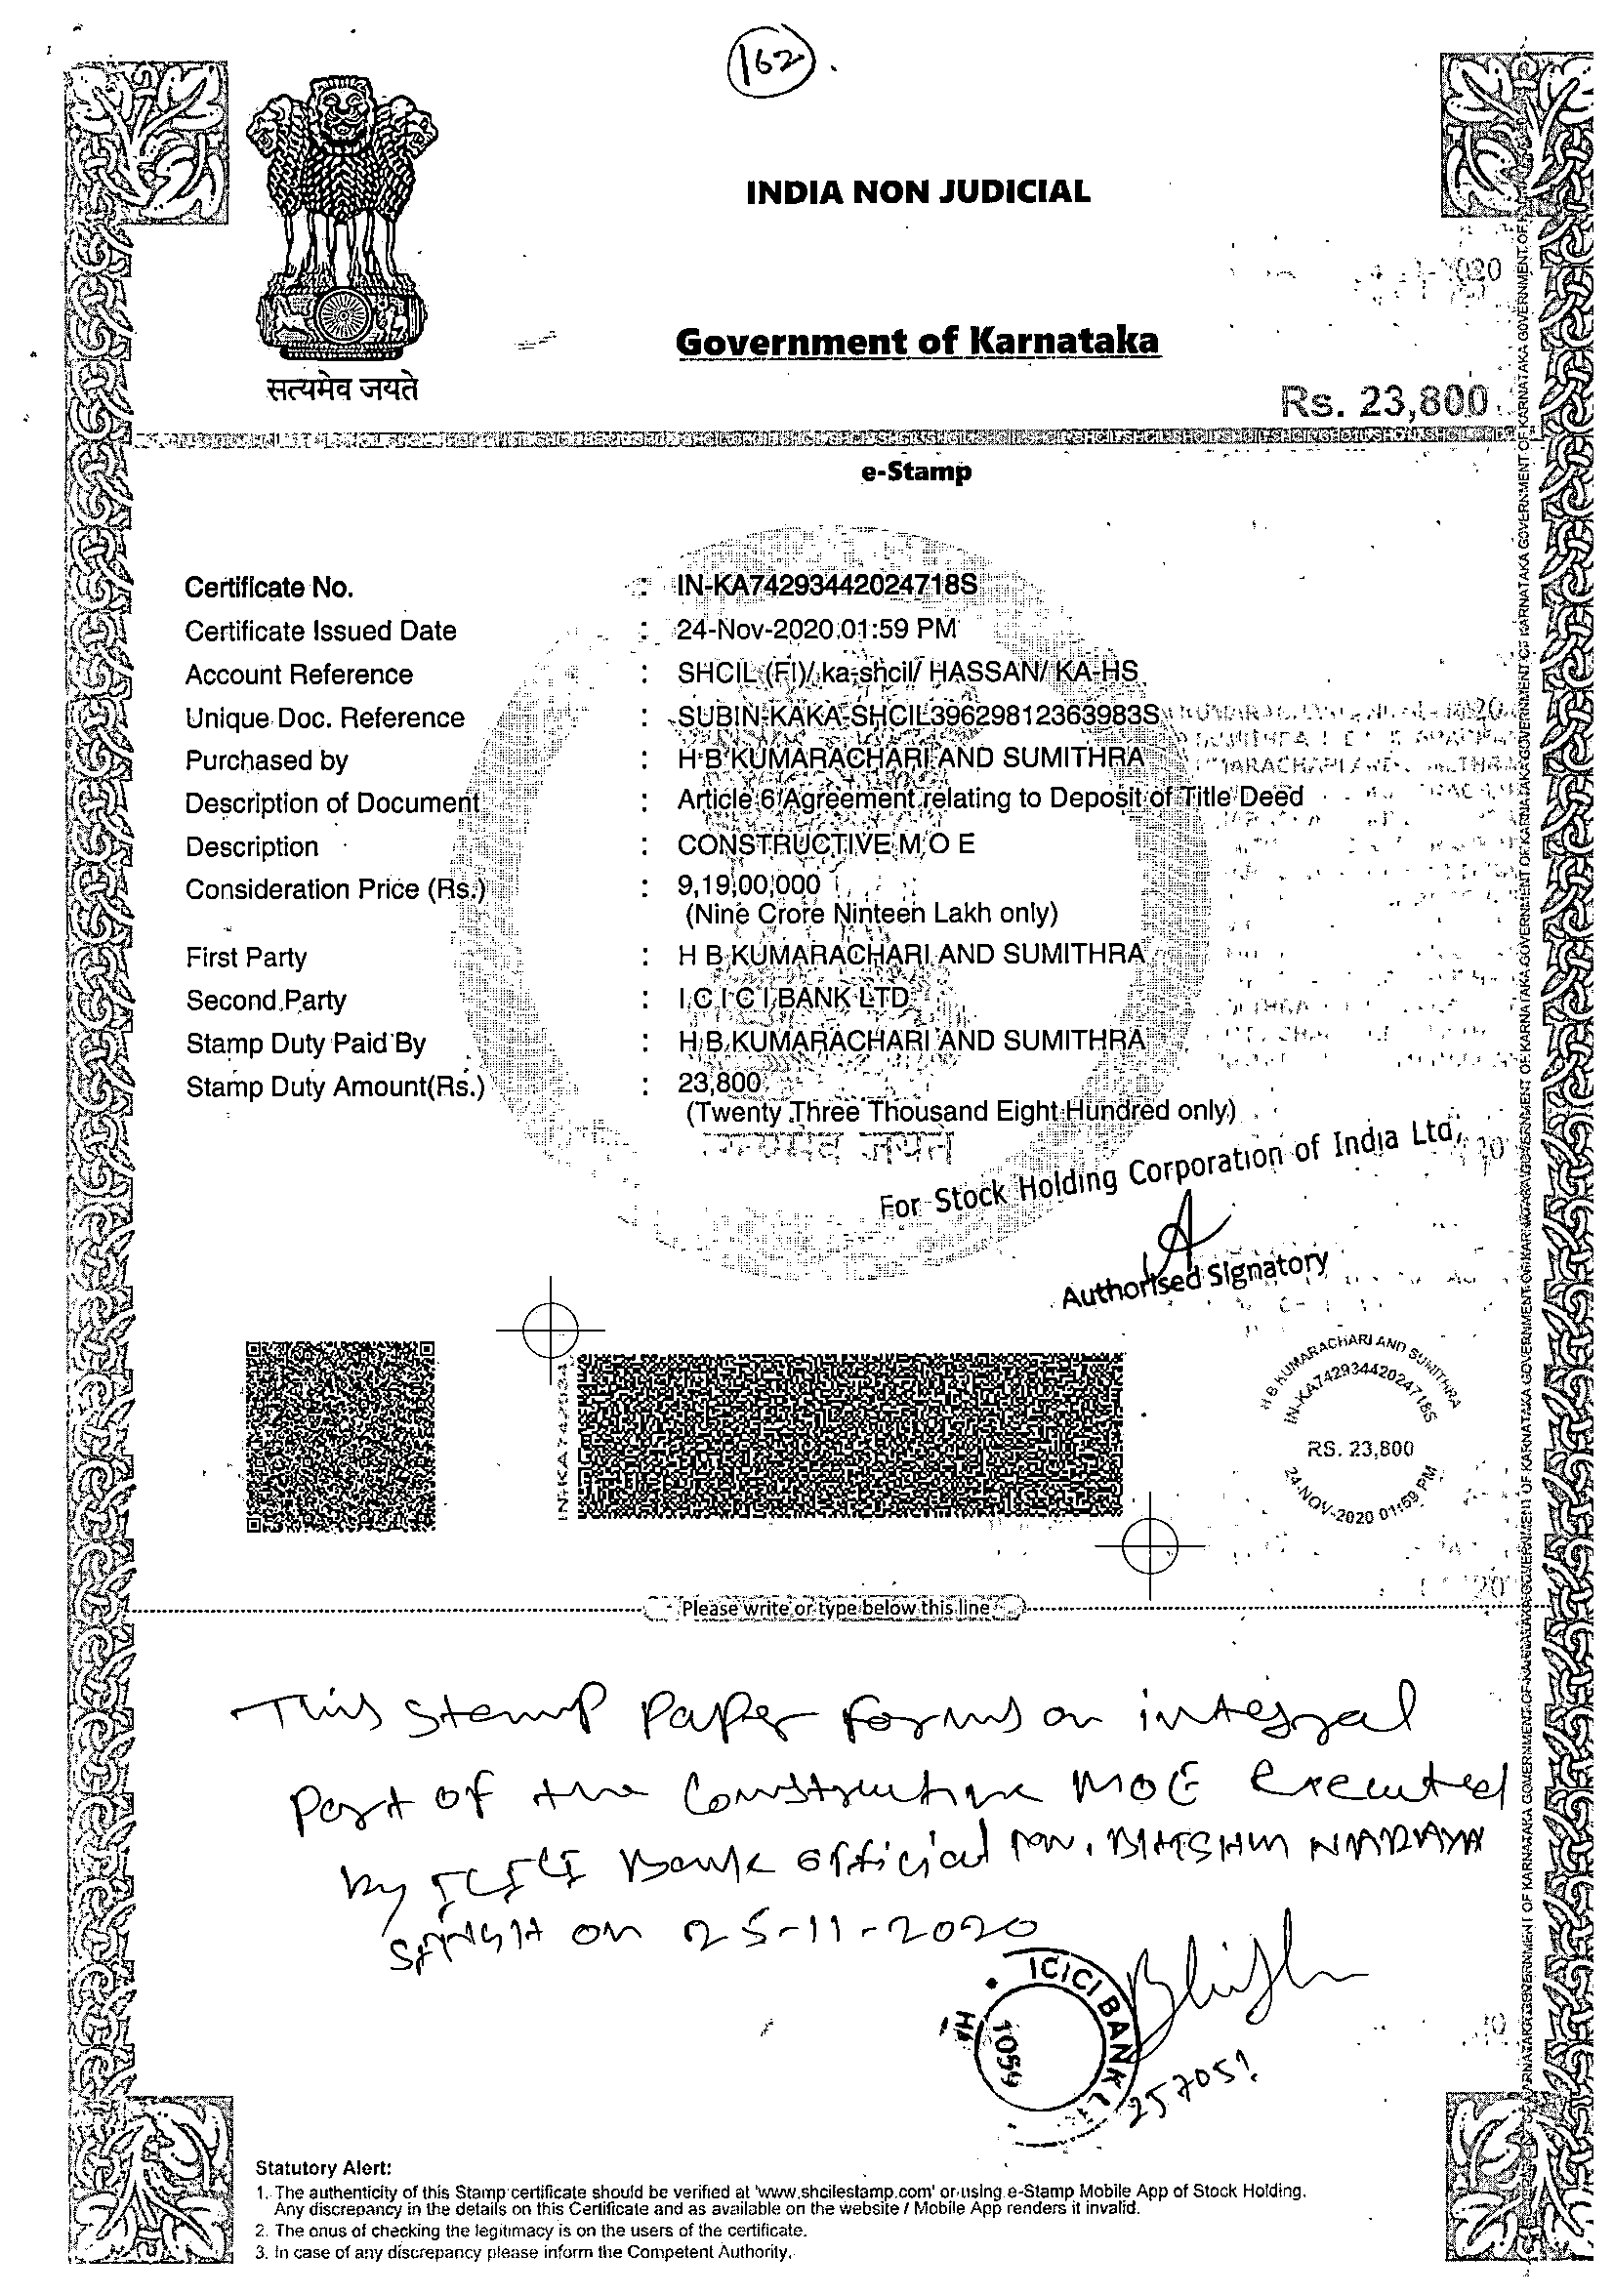 162
INDIA NON JUDICIAL
Government of Karnataka
सत्यमेव जयते
Rs. 23,800
e-Stamp
Certificate No. : IN-KA74293442024718S
Certificate Issued Date : 24-Nov-2020 01:59 PM
Account Reference : SHCIL (FI)/ ka-shcil/ HASSAN/ KA-HS
Unique Doc. Reference : SUBIN-KAKA-SHCIL39629812363983S
Purchased by : H B KUMARACHARI AND SUMITHRA
Description of Document : Article 6 Agreement relating to Deposit of Title Deed
Description : CONSTRUCTIVE M O E
Consideration Price (Rs.) : 9,19,00,000
(Nine Crore Ninteen Lakh only)
First Party : H B KUMARACHARI AND SUMITHRA
Second Party : I C I C I BANK LTD
Stamp Duty Paid By : H B KUMARACHARI AND SUMITHRA
Stamp Duty Amount(Rs.) : 23,800
(Twenty Three Thousand Eight Hundred only)
सत्यमेव जयते
For Stock Holding Corporation of India Ltd,
Authorised Signatory
H B KUMARACHARI AND SUMITHRA
IN-KA74293442024718S
RS. 23,800
24-NOV-2020 01:59 PM
Please write or type below this line
This Stamp Paper forms an integral
Part of the Constructive MOE executed
by ICICI Bank official Mr. BHISHM NARAYA
SINGH on 25-11-2020
ICICI BANK
1059
Statutory Alert:
1. The authenticity of this Stamp certificate should be verified at 'www.shcilestamp.com' or using e-Stamp Mobile App of Stock Holding.
Any discrepancy in the details on this Certificate and as available on the website / Mobile App renders it invalid.
2. The onus of checking the legitimacy is on the users of the certificate.
3. In case of any discrepancy please inform the Competent Authority.